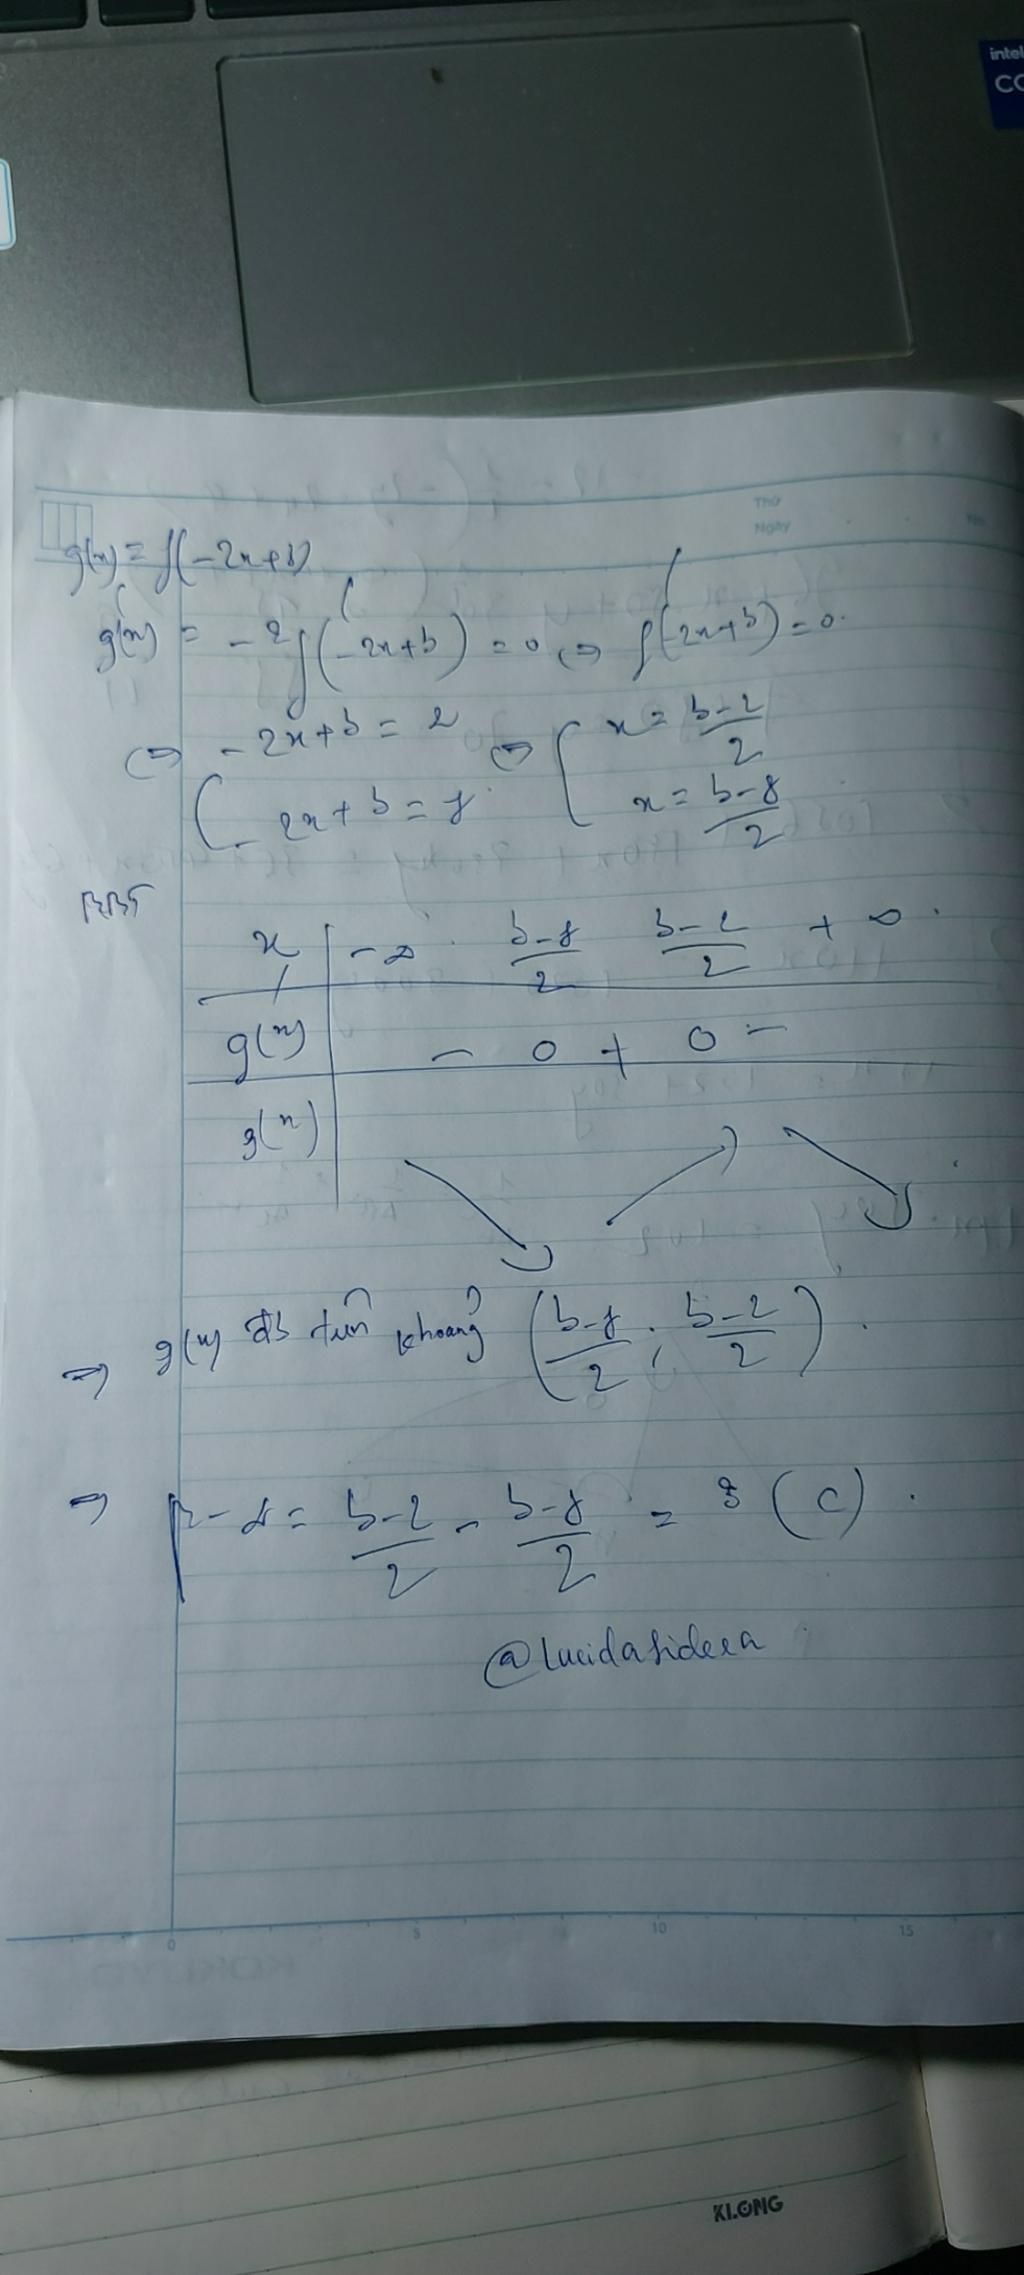 intel
CO
Thứ
Ngày
No.
g(x) = f(-2x+b)
g'(x) = -2f'(-2x+b) = 0 ⇔ f'(-2x+b) = 0.
⇔ [ -2x+b = 2 ⇔ [ x = b-2/2
-2x+b = 8 x = b-8/2
BBT
x | -∞ b-8/2 b-2/2 +∞
g'(x) | - 0 + 0 -
g(x) |
⇒ g(x) đb trên khoảng (b-8/2 ; b-2/2).
⇒ β-α = b-2/2 - b-8/2 = 3 (C).
@lucidasidera
0 5 10 15
KLONG